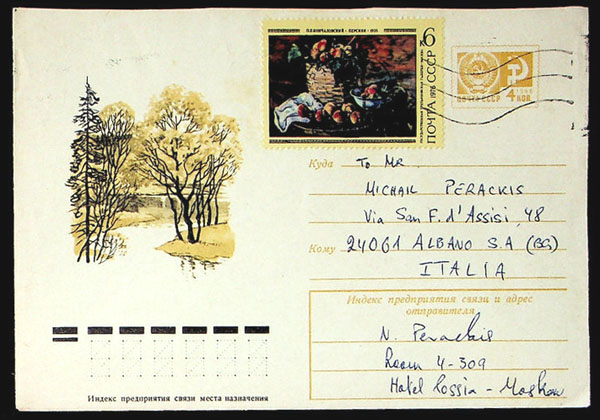 П.П.КОНЧАЛОВСКИЙ
ПЕРСИКИ
К6
ПОЧТА СССР
1976
ПОЧТА СССР
1966
4 КОП.
Куда
To MR.
MICHAIL PERACKIS
Via San F. d'Assisi, 48
Кому
24061 ALBANO S.A (BG)
ITALIA
Индекс предприятия связи и адрес
отправителя
N. Perackis
Room 4-309
Hotel Rossia - Moskow
Индекс предприятия связи места назначения